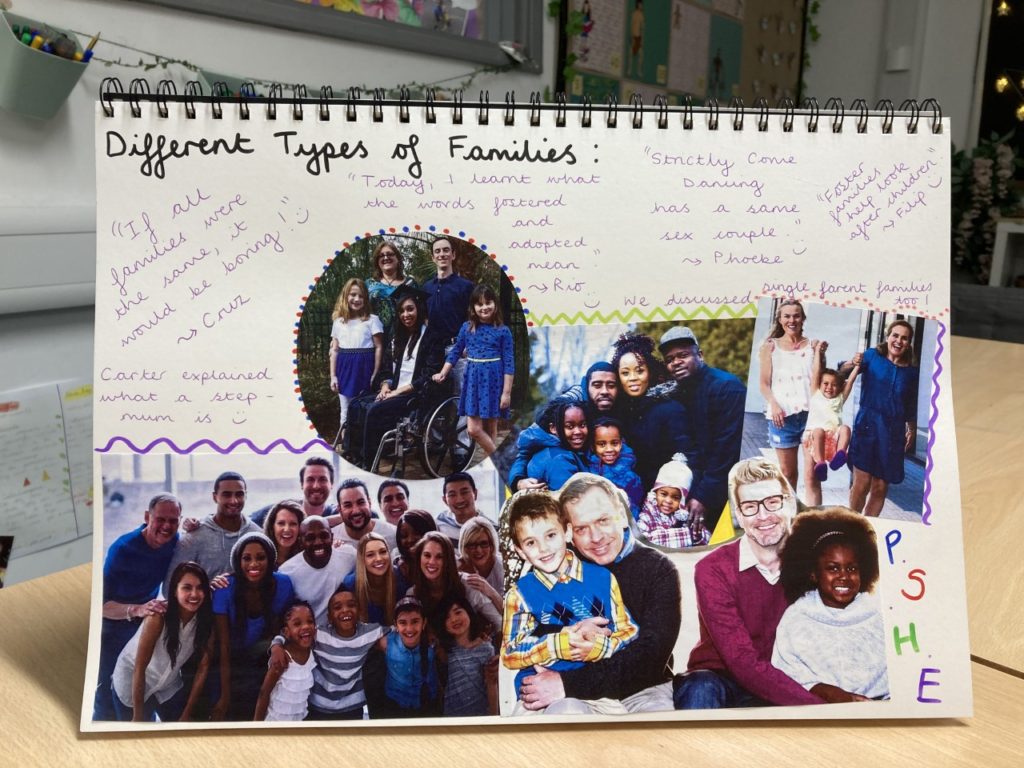 Different Types of Families :
"If all
families were
the same, it
would be boring!"
~> Cruz
"Today, I learnt what
the words fostered
and
adopted
mean."
~> Rio
"Strictly Come
Dancing
has a same
sex couple."
~> Phoebe
"Foster
families look
help look
after children"
~> Filip
We discussed single parent families
too!
Carter explained
what a step-
mum is
P.
S.
H.
E